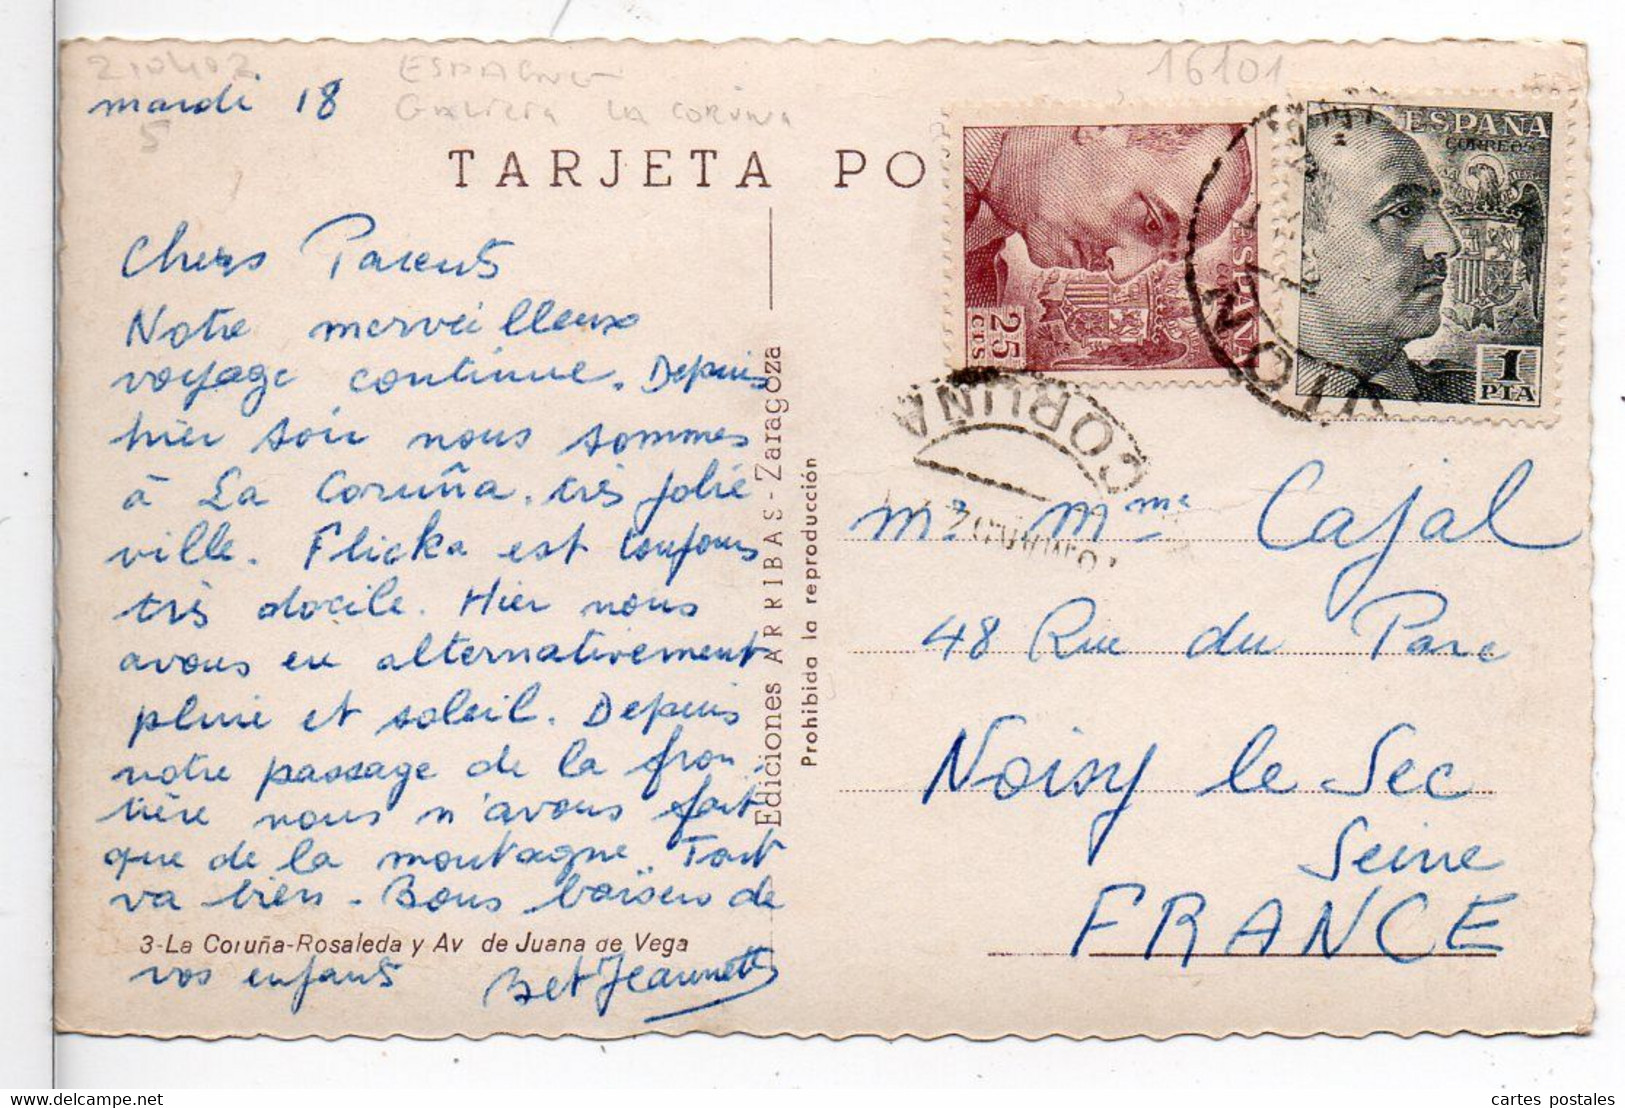 210402
ESPAGNE
16101
mardi 18
GALICIA LA CORUNA
5
TARJETA PO
ESPAÑA
CORREOS
1
PTA
ESPAÑA
25
CTS
CORUÑA
Chers Parents
Notre merveilleux
voyage continue. Depuis
hier soir nous sommes
à La Coruña. très jolie
ville. Flicka est toujours
très docile. Hier nous
avons eu alternativement
pluie et soleil. Depuis
notre passage de la fron-
tière nous n'avons fait
que de la montagne. Tout
va bien. Bons baisers de
3-La Coruña-Rosaleda y Av de Juana de Vega
vos enfants B et Jeannette
Ediciones ARRIBAS-Zaragoza
Prohibida la reproducción
Mr Mme Cajal
48 Rue du Parc
Noisy le Sec
Seine
FRANCE
cartes postales